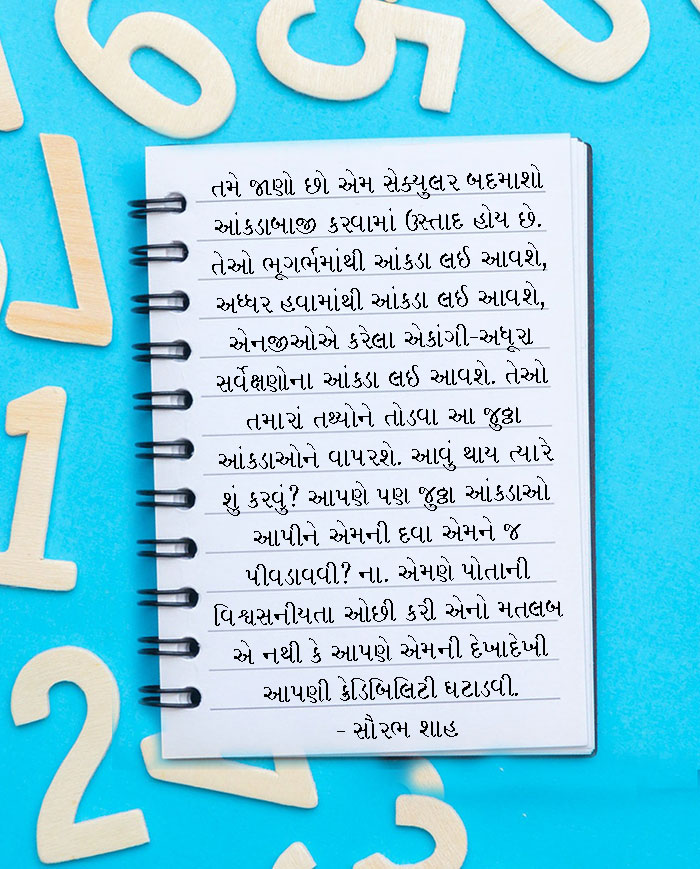 તમે જાણો છો એમ સેક્યુલર બદમાશો
આંકડાબાજી કરવામાં ઉસ્તાદ હોય છે.
તેઓ ભૂગર્ભમાંથી આંકડા લઈ આવશે,
અધ્ધર હવામાંથી આંકડા લઈ આવશે,
એનજીઓએ કરેલા એકાંગી-અધૂરા
સર્વેક્ષણોના આંકડા લઈ આવશે. તેઓ
તમારાં તથ્યોને તોડવા આ જુઠ્ઠા
આંકડાઓને વાપરશે. આવું થાય ત્યારે
શું કરવું? આપણે પણ જુઠ્ઠા આંકડાઓ
આપીને એમની દવા એમને જ
પીવડાવવી? ના. એમણે પોતાની
વિશ્વસનીયતા ઓછી કરી એનો મતલબ
એ નથી કે આપણે એમની દેખાદેખી
આપણી ક્રેડિબિલિટી ઘટાડવી.
- સૌરભ શાહ